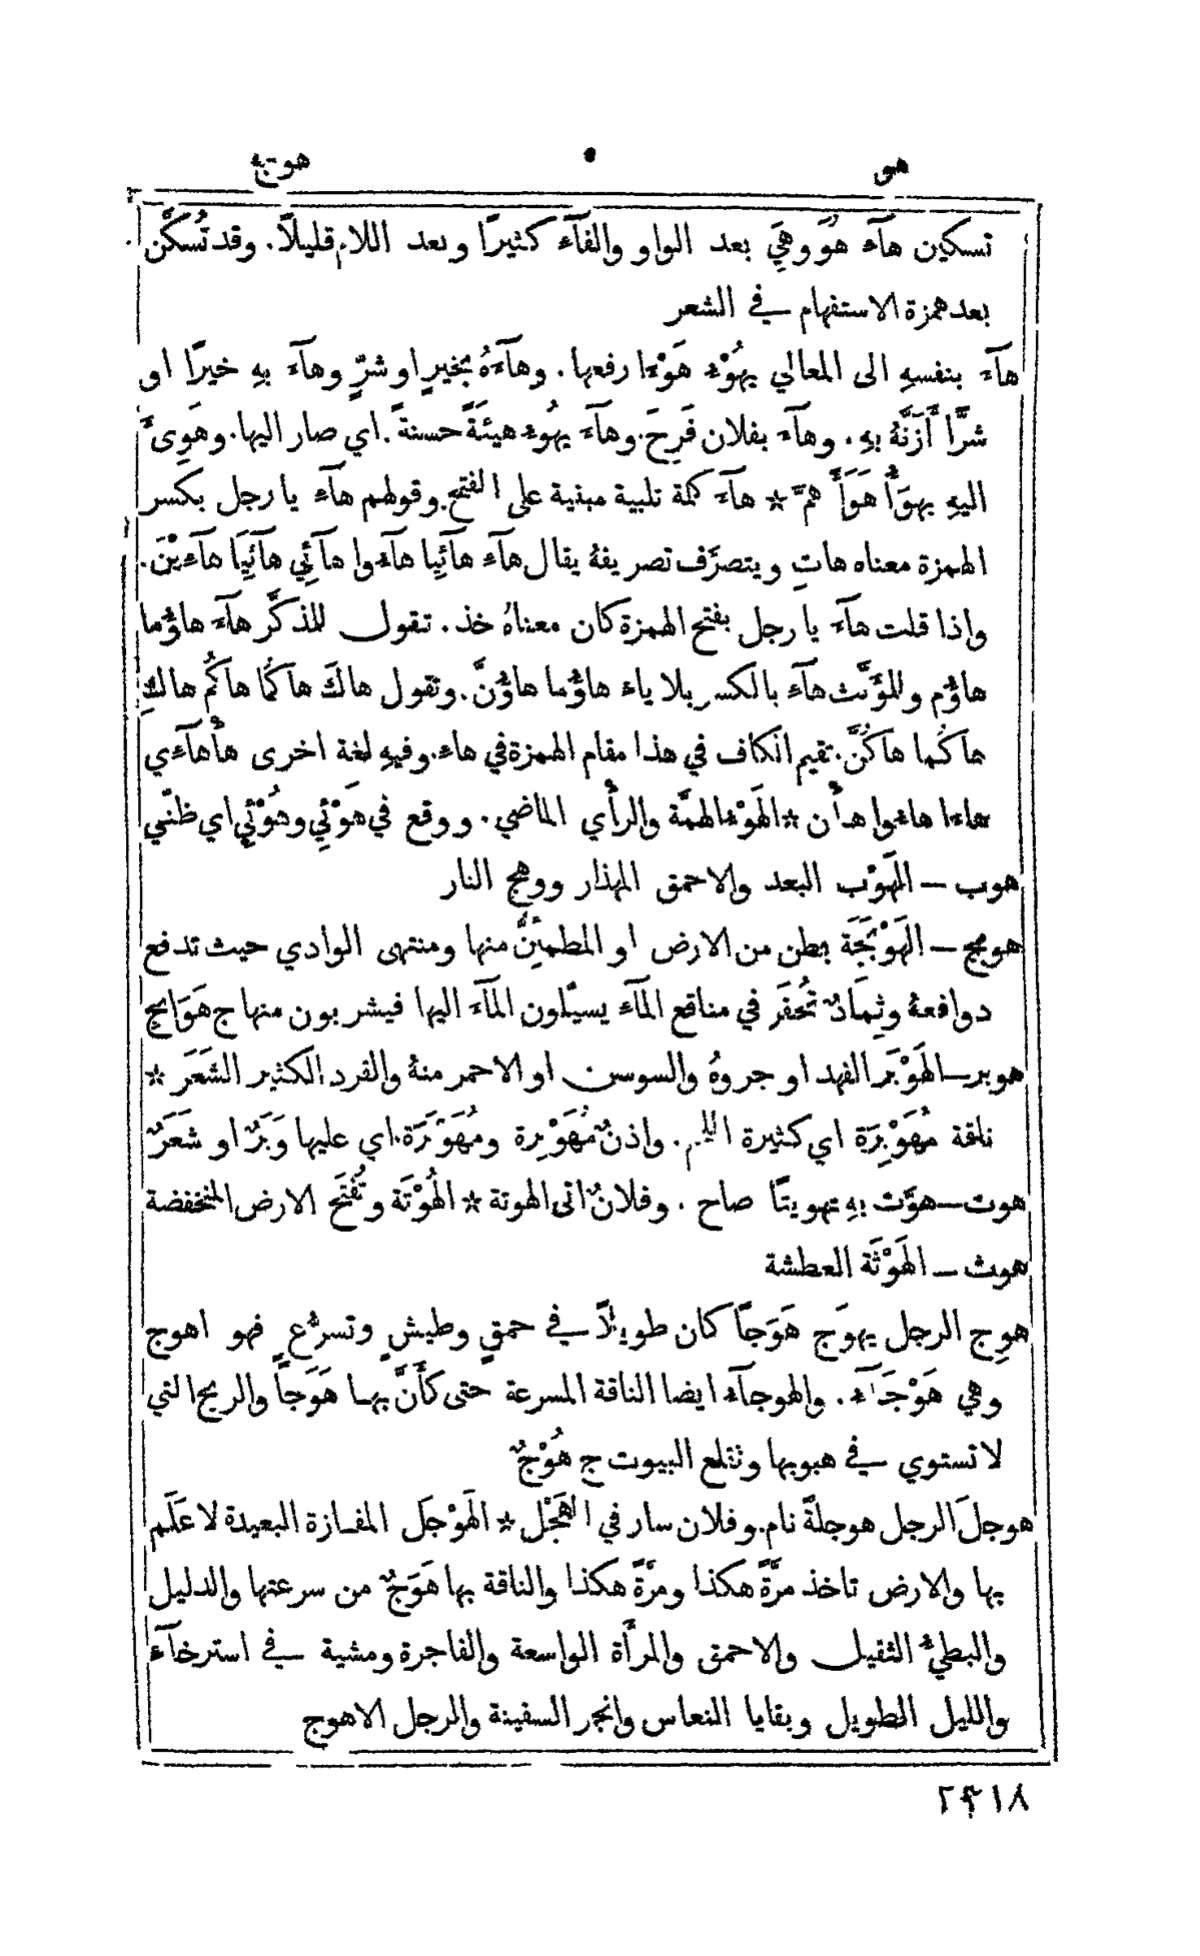 هو • هوبج
تسكين هآء هُوَ وهِيَ بعد الواو والفآء كثيرًا وبعد اللام قليلًا. وقد تُسكَّن
بعد همزة الاستفهام في الشعر
هآءَ بنفسهِ الى المعالي يهُوْءُ هَوْءًا رفعها. وهآءَهُ بخيرٍ او شرٍّ وهآءَ بهِ خيرًا او
شرًّا أَزَنَّهُ بهِ. وهآءَ بفلان فَرِحَ. وهآءَ يهُوءُ هيئَةً حسنةً. اي صار اليها. وهَوِئَ
اليهِ يهوَأُ هَوَأً همَّ * هآءَ كلمة تلبية مبنية على الفتح. وقولهم هآءِ يا رجل بكسر
الهمزة معناه هاتِ ويتصرَّف تصريفهُ يقال هآءِ هآئِيا هآءُوا هآئِي هآئِيَا هآءِيْنَ.
واذا قلت هآءَ يا رجل بفتح الهمزة كان معناهُ خذ. تقول للمذكَّر هآءَ هاؤُما
هاؤُم وللمؤَنَّث هآءِ بالكسر بلا ياء هاؤُما هاؤُنَّ. وتقول هاكَ هاكُما هاكُم هاكِ
هاكُما هاكُنَّ. تقيم الكاف في هذا مقام الهمزة في هاء. وفيهِ لغة اخرى هأْ هآءِي
هاءا هاءُوا هأْن * الهَوْءُ الهمَّة والرأْي الماضي. ووقع في هَوْئِي وهُوْئِي اي ظنّي
هوب – الهَوْب البعد والاحمق المهذار ووهج النار
هوبج – الهَوْبَجَة بطن من الارض او المطمئِنّ منها ومنتهى الوادي حيث تدفع
دوافعهُ وثِمَادٌ تُحفَر في مناقع المآء يسيّلون المآءَ اليها فيشربون منها ج هَوَابِج
هوبر–الهَوْبَر الفهد او جروهُ والسوسن او الاحمر منهُ والقرد الكثير الشَعَر *
ناقة مُهَوْبِرَة اي كثيرة . واذنٌ مُهَوْبِرة ومُهَوْبَرَة. اي عليها وَبَرٌ او شعَرٌ
هوت–هوَّت بهِ تهويتًا صاح . وفلانٌ اتى الهوتة * الهُوْتَة وتُفتَح الارض المنخفضة
هوث – الهَوْثَة العطشة
هوِج الرجل يهوَج هَوَجًا كان طويلًا في حمقٍ وطيشٍ وتسرُّعٍ فهو اهوج
وهي هَوْجَآء. والهوجآء ايضا الناقة المسرعة حتى كأَنَّ بها هَوَجًا والريح التي
لا تستوي في هبوبها وتقلع البيوت ج هُوْجٌ
هوجلَ الرجل هوجلةً نام. وفلان سار في الهَجْل * الهَوْجَل المفازة البعيدة لا عَلَم
بها والارض تاخذ مرَّةً هكذا ومرَّةً هكذا والناقة بها هَوَجٌ من سرعتها والدليل
والبطيءُ الثقيل والاحمق والمرأَة الواسعة والفاجرة ومشية في استرخآء
والليل الطويل وبقايا النعاس وانجر السفينة والرجل الاهوج